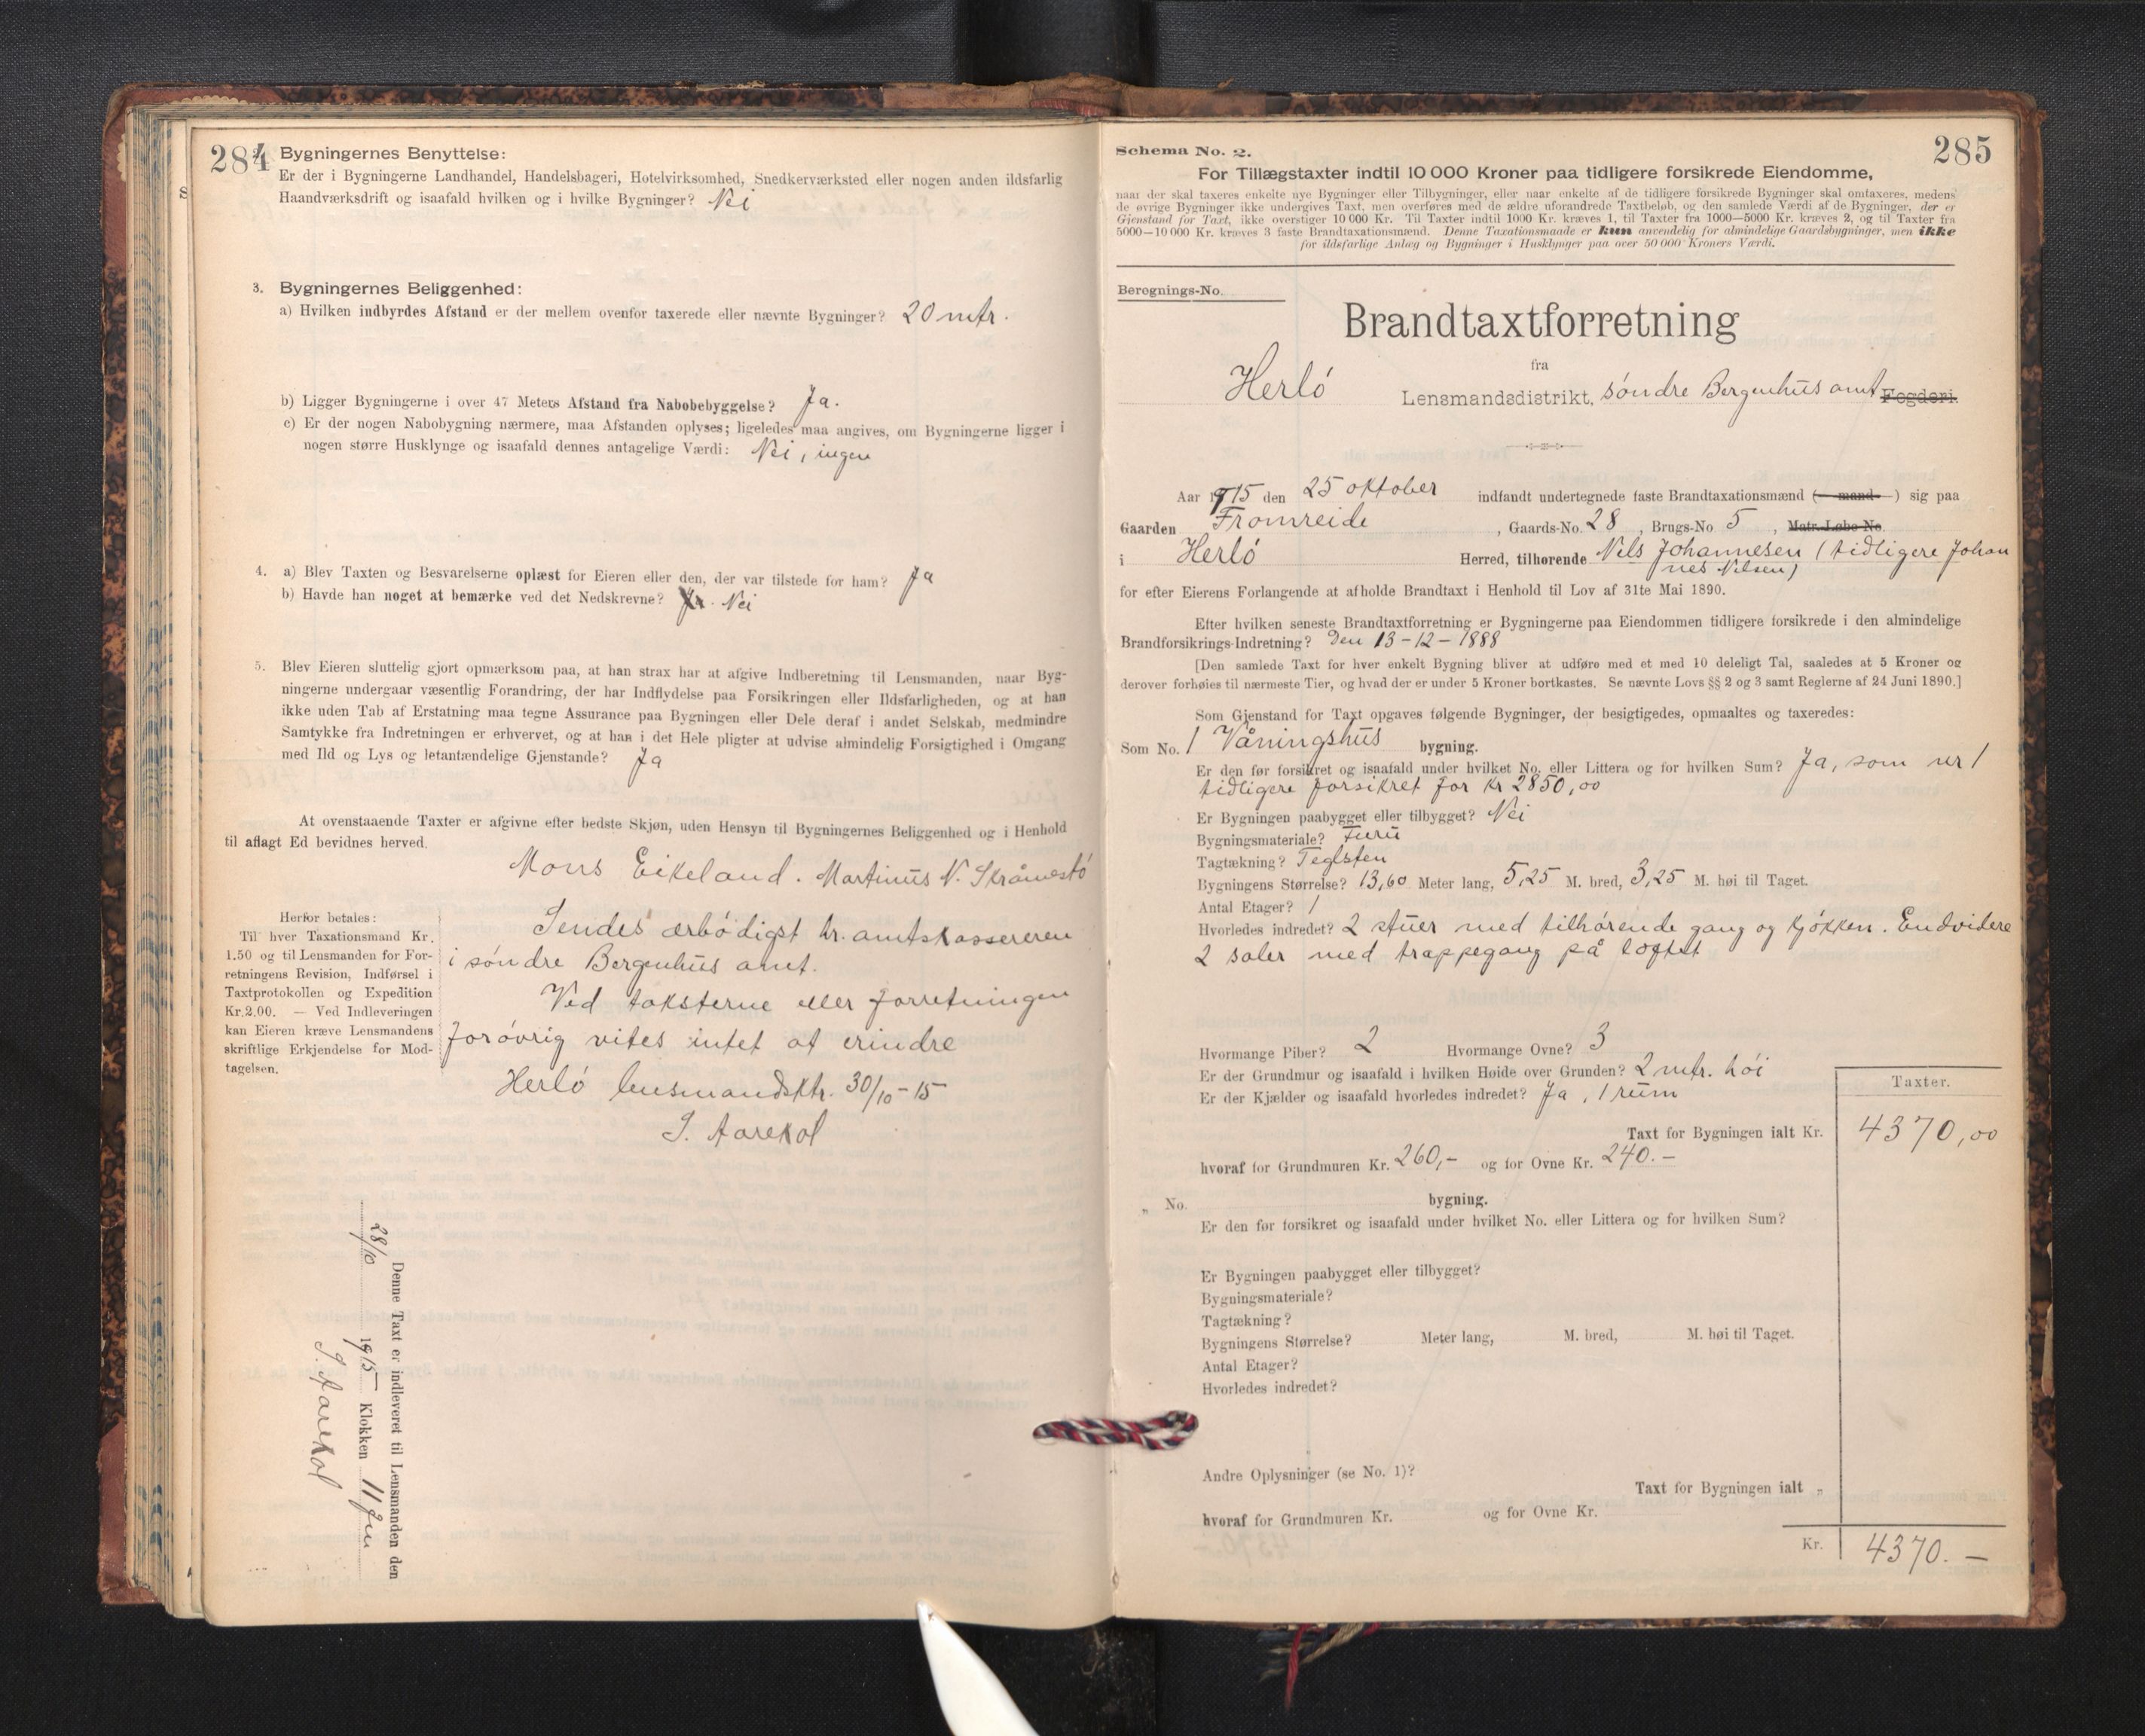 284
Bygningernes Benyttelse:
Er der i Bygningerne Landhandel, Handelsbageri, Hotelvirksomhed, Snedkerværksted eller nogen anden ildsfarlig
Haandværksdrift og isaafald hvilken og i hvilke Bygninger? Nei
3. Bygningernes Beliggenhed:
a) Hvilken indbyrdes Afstand er der mellem ovenfor taxerede eller nævnte Bygninger? 20 mtr.
b) Ligger Bygningerne i over 47 Meters Afstand fra Nabobebyggelse? Ja.
c) Er der nogen Nabobygning nærmere, maa Afstanden oplyses; ligeledes maa angives, om Bygningerne ligger i
nogen større Husklynge og isaafald dennes antagelige Værdi: Nei, ingen
4. a) Blev Taxten og Besvarelserne oplæst for Eieren eller den, der var tilstede for ham? Ja
b) Havde han noget at bemærke ved det Nedskrevne? Nei
5. Blev Eieren sluttelig gjort opmærksom paa, at han strax har at afgive Indberetning til Lensmanden, naar Byg-
ningerne undergaar væsentlig Forandring, der har Indflydelse paa Forsikringen eller Ildsfarligheden, og at han
ikke uden Tab af Erstatning maa tegne Assurance paa Bygningen eller Dele deraf i andet Selskab, medmindre
Samtykke fra Indretningen er erhvervet, og at han i det Hele pligter at udvise almindelig Forsigtighed i Omgang
med Ild og Lys og letantændelige Gjenstande? Ja
At ovenstaaende Taxter er afgivne efter bedste Skjøn, uden Hensyn til Bygningernes Beliggenhed og i Henhold
til aflagt Ed bevidnes herved.
Mons Eikeland. Martinus N. Skråmestø
Herfor betales:
Til hver Taxationsmand Kr.
1.50 og til Lensmanden for For-
retningens Revision, Indførsel i
Taxtprotokollen og Expedition
Kr. 2.00. — Ved Indleveringen
kan Eieren kræve Lensmandens
skriftlige Erkjendelse for Mod-
tagelsen.
Sendes ærbødigst hr. amtskassereren
i søndre Bergenhus amt.
Ved taksterne eller forretningen
forøvrig vites intet at erindre
Herlø lensmandsktr. 30/10-15
S. Aarekol
Denne Taxt er indleveret til Lensmanden den
28/10 1915 Klokken 11 fm
S. Aarekol
285
Schema No. 2.
For Tillægstaxter indtil 10 000 Kroner paa tidligere forsikrede Eiendomme,
naar der skal taxeres enkelte nye Bygninger eller Tilbygninger, eller naar enkelte af de tidligere forsikrede Bygninger skal omtaxeres, medens
de øvrige Bygninger ikke undergives Taxt, men overføres med de ældre uforandrede Taxtbeløb, og den samlede Værdi af de Bygninger, der er
Gjenstand for Taxt, ikke overstiger 10 000 Kr. Til Taxter indtil 1000 Kr. kræves 1, til Taxter fra 1000—5000 Kr. kræves 2, og til Taxter fra
5000—10 000 Kr. kræves 3 faste Brandtaxationsmænd. Denne Taxationsmaade er kun anvendelig for almindelige Gaardsbygninger, men ikke
for ildsfarlige Anlæg og Bygninger i Husklynger paa over 50 000 Kroners Værdi.
Beregnings-No.
Brandtaxtforretning
fra
Herlø Lensmandsdistrikt, søndre Bergenhus amt Fogderi.
Aar 1915 den 25 oktober indfandt undertegnede faste Brandtaxationsmænd (—mand—) sig paa
Gaarden Fromreide, Gaards-No. 28, Brugs-No 5, Matr. Løbe No.
i Herlø Herred, tilhørende Nils Johannesen (tidligere Johan
nes Nilsen)
for efter Eierens Forlangende at afholde Brandtaxt i Henhold til Lov af 31te Mai 1890.
Efter hvilken seneste Brandtaxtforretning er Bygningerne paa Eiendommen tidligere forsikrede i den almindelige
Brandforsikrings-Indretning? Den 13-12-1888
[Den samlede Taxt for hver enkelt Bygning bliver at udføre med et med 10 deleligt Tal, saaledes at 5 Kroner og
derover forhøies til nærmeste Tier, og hvad der er under 5 Kroner bortkastes. Se nævnte Lovs §§ 2 og 3 samt Reglerne af 24 Juni 1890.]
Som Gjenstand for Taxt opgaves følgende Bygninger, der besigtigedes, opmaaltes og taxeredes:
Som No. 1 Våningshus bygning.
Er den før forsikret og isaafald under hvilket No. eller Littera og for hvilken Sum? Ja, som nr 1
tidligere forsikret for kr 2850,00
Er Bygningen paabygget eller tilbygget? Nei
Bygningsmateriale? Furu
Tagtækning? Teglsten
Bygningens Størrelse? 13,60 Meter lang, 5,25 M. bred, 3,25 M. høi til Taget.
Antal Etager? 1
Hvorledes indredet? 2 stuer med tilhørende gang og kjøkken. Endvidere
2 saler med trappegang på loftet
Hvormange Piber? 2 Hvormange Ovne? 3
Er der Grundmur og isaafald i hvilken Høide over Grunden? 2 mtr. høi
Er der Kjælder og isaafald hvorledes indredet? Ja, 1 rum
Taxter.
Taxt for Bygningen ialt Kr. 4370,00
hvoraf for Grundmuren Kr. 260,- og for Ovne Kr. 240.-
„ No. bygning.
Er den før forsikret og isaafald under hvilket No. eller Littera og for hvilken Sum?
Er Bygningen paabygget eller tilbygget?
Bygningsmateriale?
Tagtækning?
Bygningens Størrelse? Meter lang, M. bred, M. høi til Taget.
Antal Etager?
Hvorledes indredet?
Andre Oplysninger (se No. 1)?
Taxt for Bygningen ialt „
hvoraf for Grundmuren Kr. og for Ovne Kr.
Kr. 4370.-